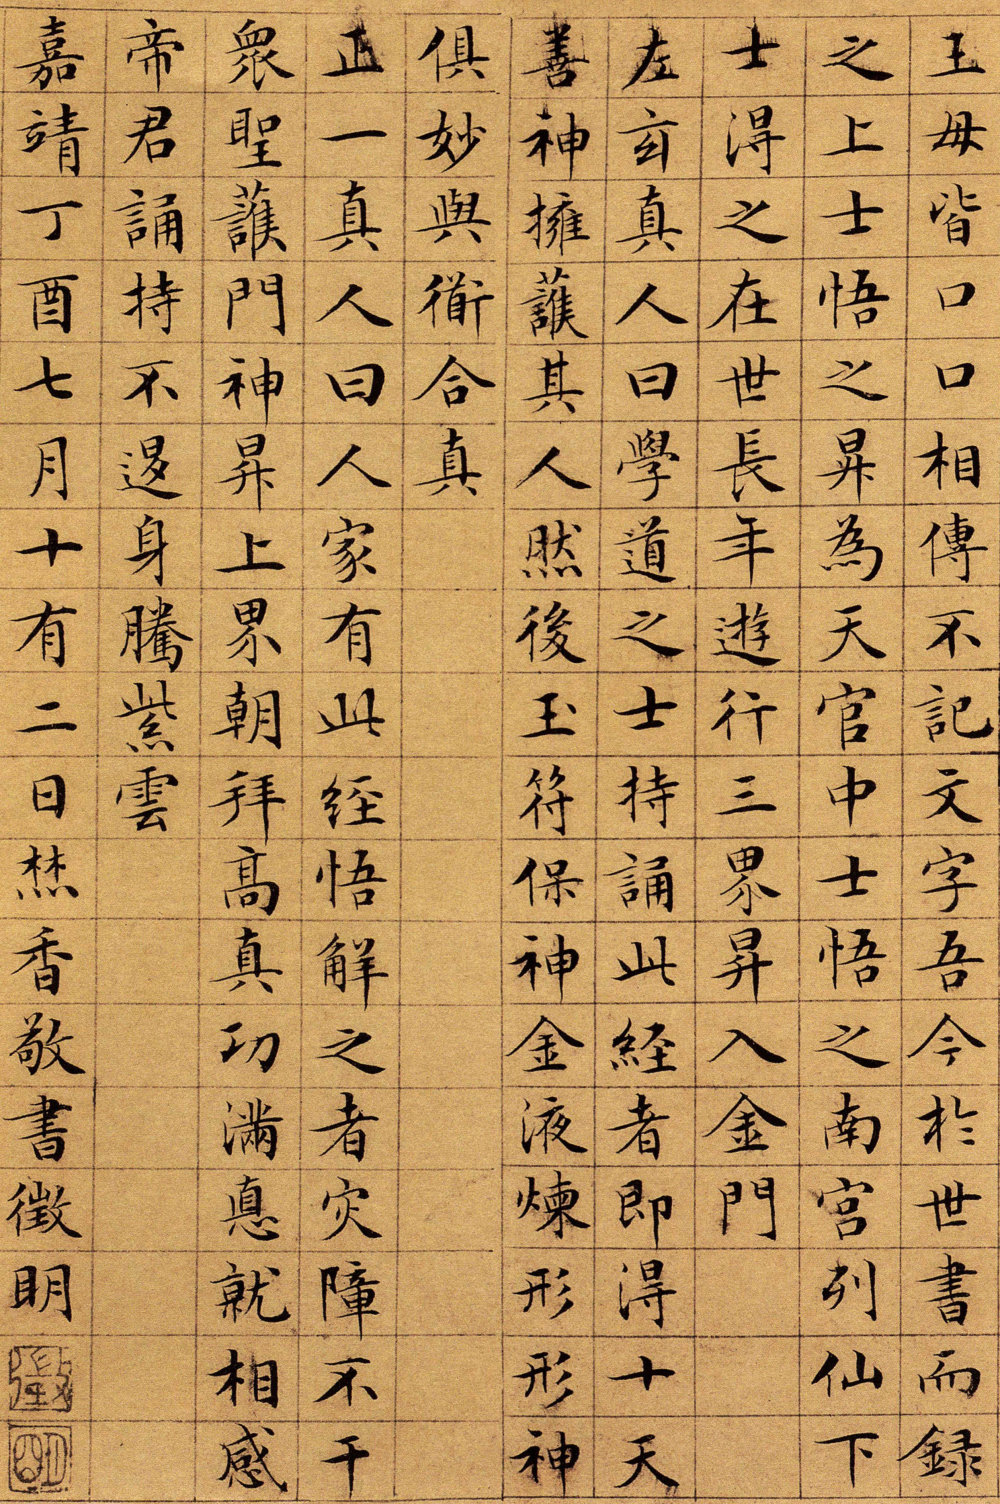 王母皆口口相傳不記文字吾今於世書而録
之上士悟之昇為天官中士悟之南宮列仙下
士得之在世長年遊行三界昇入金門
左玄真人曰學道之士持誦此經者即得十天
善神擁護其人然後玉符保神金液煉形形神
俱妙與衜合真
正一真人曰人家有此經悟解之者灾障不干
衆聖護門神昇上界朝拜高真功滿悳就相感
帝君誦持不退身騰紫雲
嘉靖丁酉七月十有二日焚香敬書徵明
徵
明